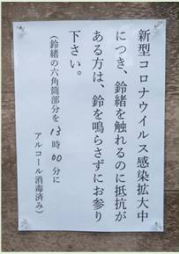 新型コロナウイルス感染拡大中
につき、鈴緒を触れるのに抵抗が
ある方は、鈴を鳴らさずにお参り
下さい。
(鈴緒の六角筒部分を 13時 00分に
アルコール消毒済み)